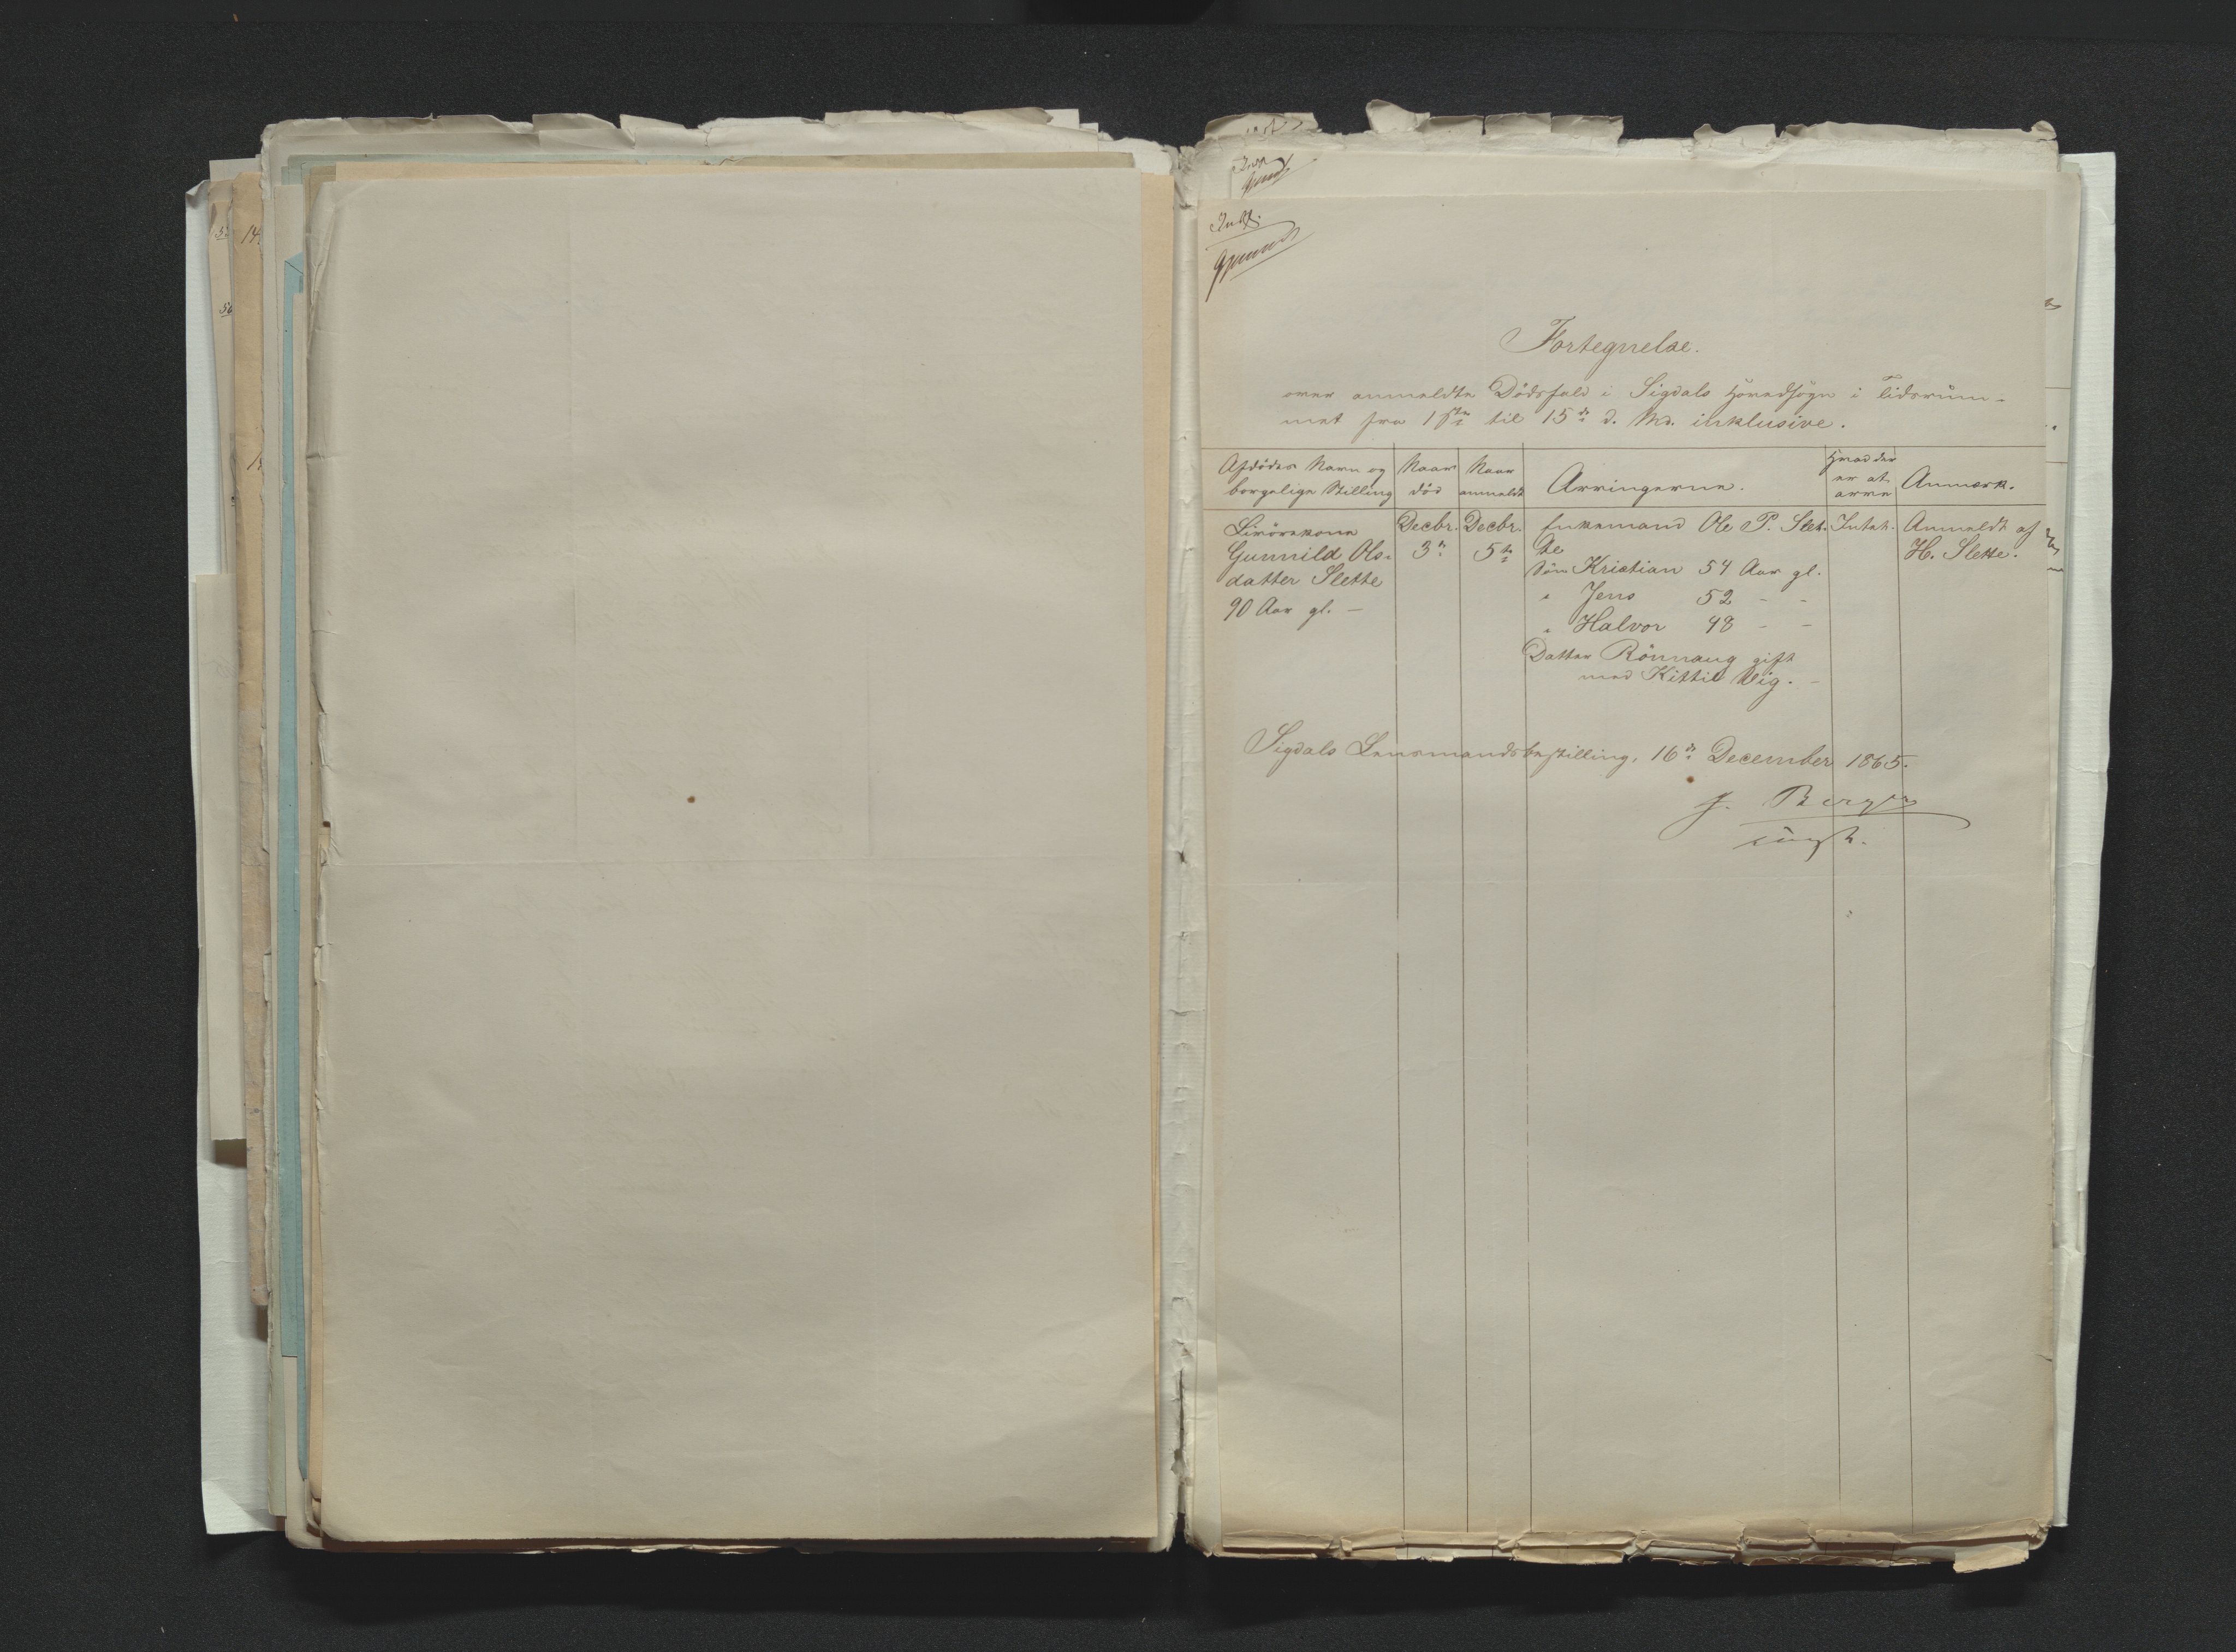 Fortegnelse.
over anmeldte Dödsfald i Sigdals Hovedsogn i Tidsrum-
met fra 1ste til 15de d. Md. inklusive.
Afdödes Navn og borgelige Stilling
Naar död
Naar anmeldt
Arvingerne.
Hvad der er at arve
Anmærk.
Livörekone
Gunnild Ols-
datter Slette
90 Aar gl. —
Decbr.
3de
Decbr.
5te
Enkemand Ole P. Slet-
te
Sön Kristian 54 Aar gl.
" Jens 52 - -
" Halvor 48 - -
Datter Rönnaug gift
med Kittil Vig. -
Intet.
Anmeldt af
H. Slette.
Sigdals Lensmandsbestilling, 16de December 1865.